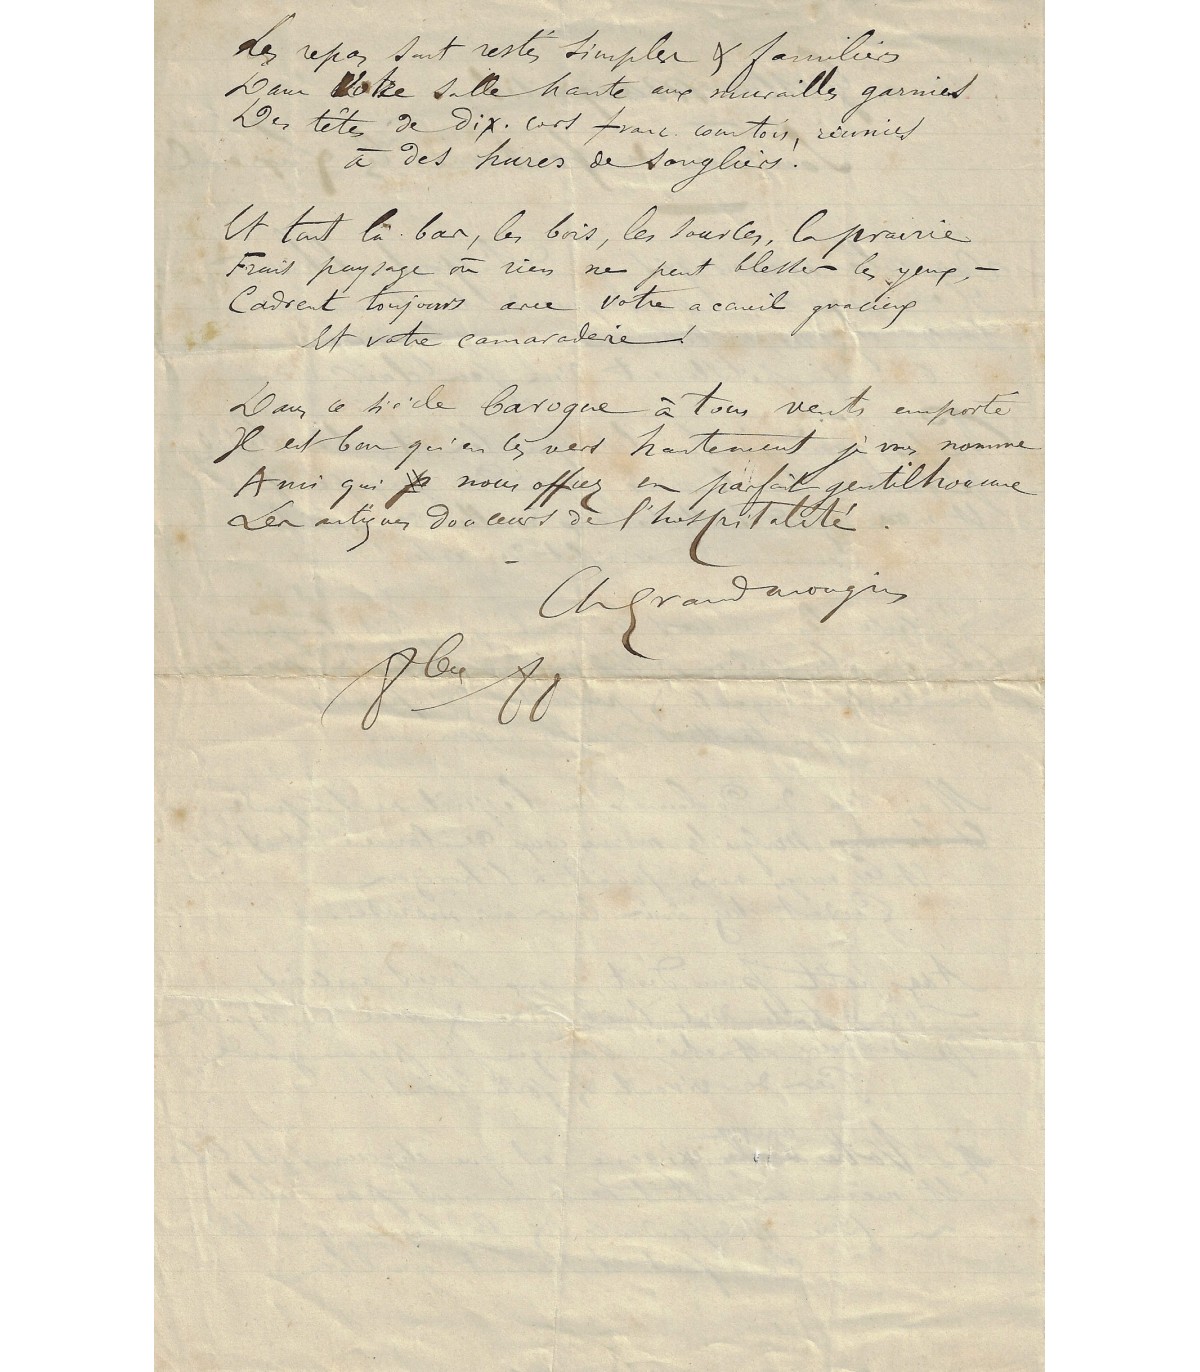 Les repas sont restés simples & familiers
Dans Votre salle haute aux murailles garnies
Des têtes de dix-cors franc-comtois, réunies
à des hures de sangliers!
Et tout là-bas, les bois, les sources, la prairie
Frais paysage où rien ne peut blesser les yeux, —
Cadrent toujours avec votre accueil gracieux
Et votre camaraderie!
Dans ce siècle baroque à tous vents emporté
Il est bon qu'en ces vers hautement je vous nomme
Ami qui nous offrez en parfait gentilhomme
Les antiques douceurs de l'hospitalité.
Ch Grandmougin
8bre